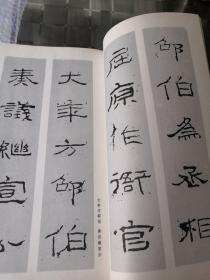 邵伯為丞相
屈原作衙官
大年方邵伯
奏議繼宣